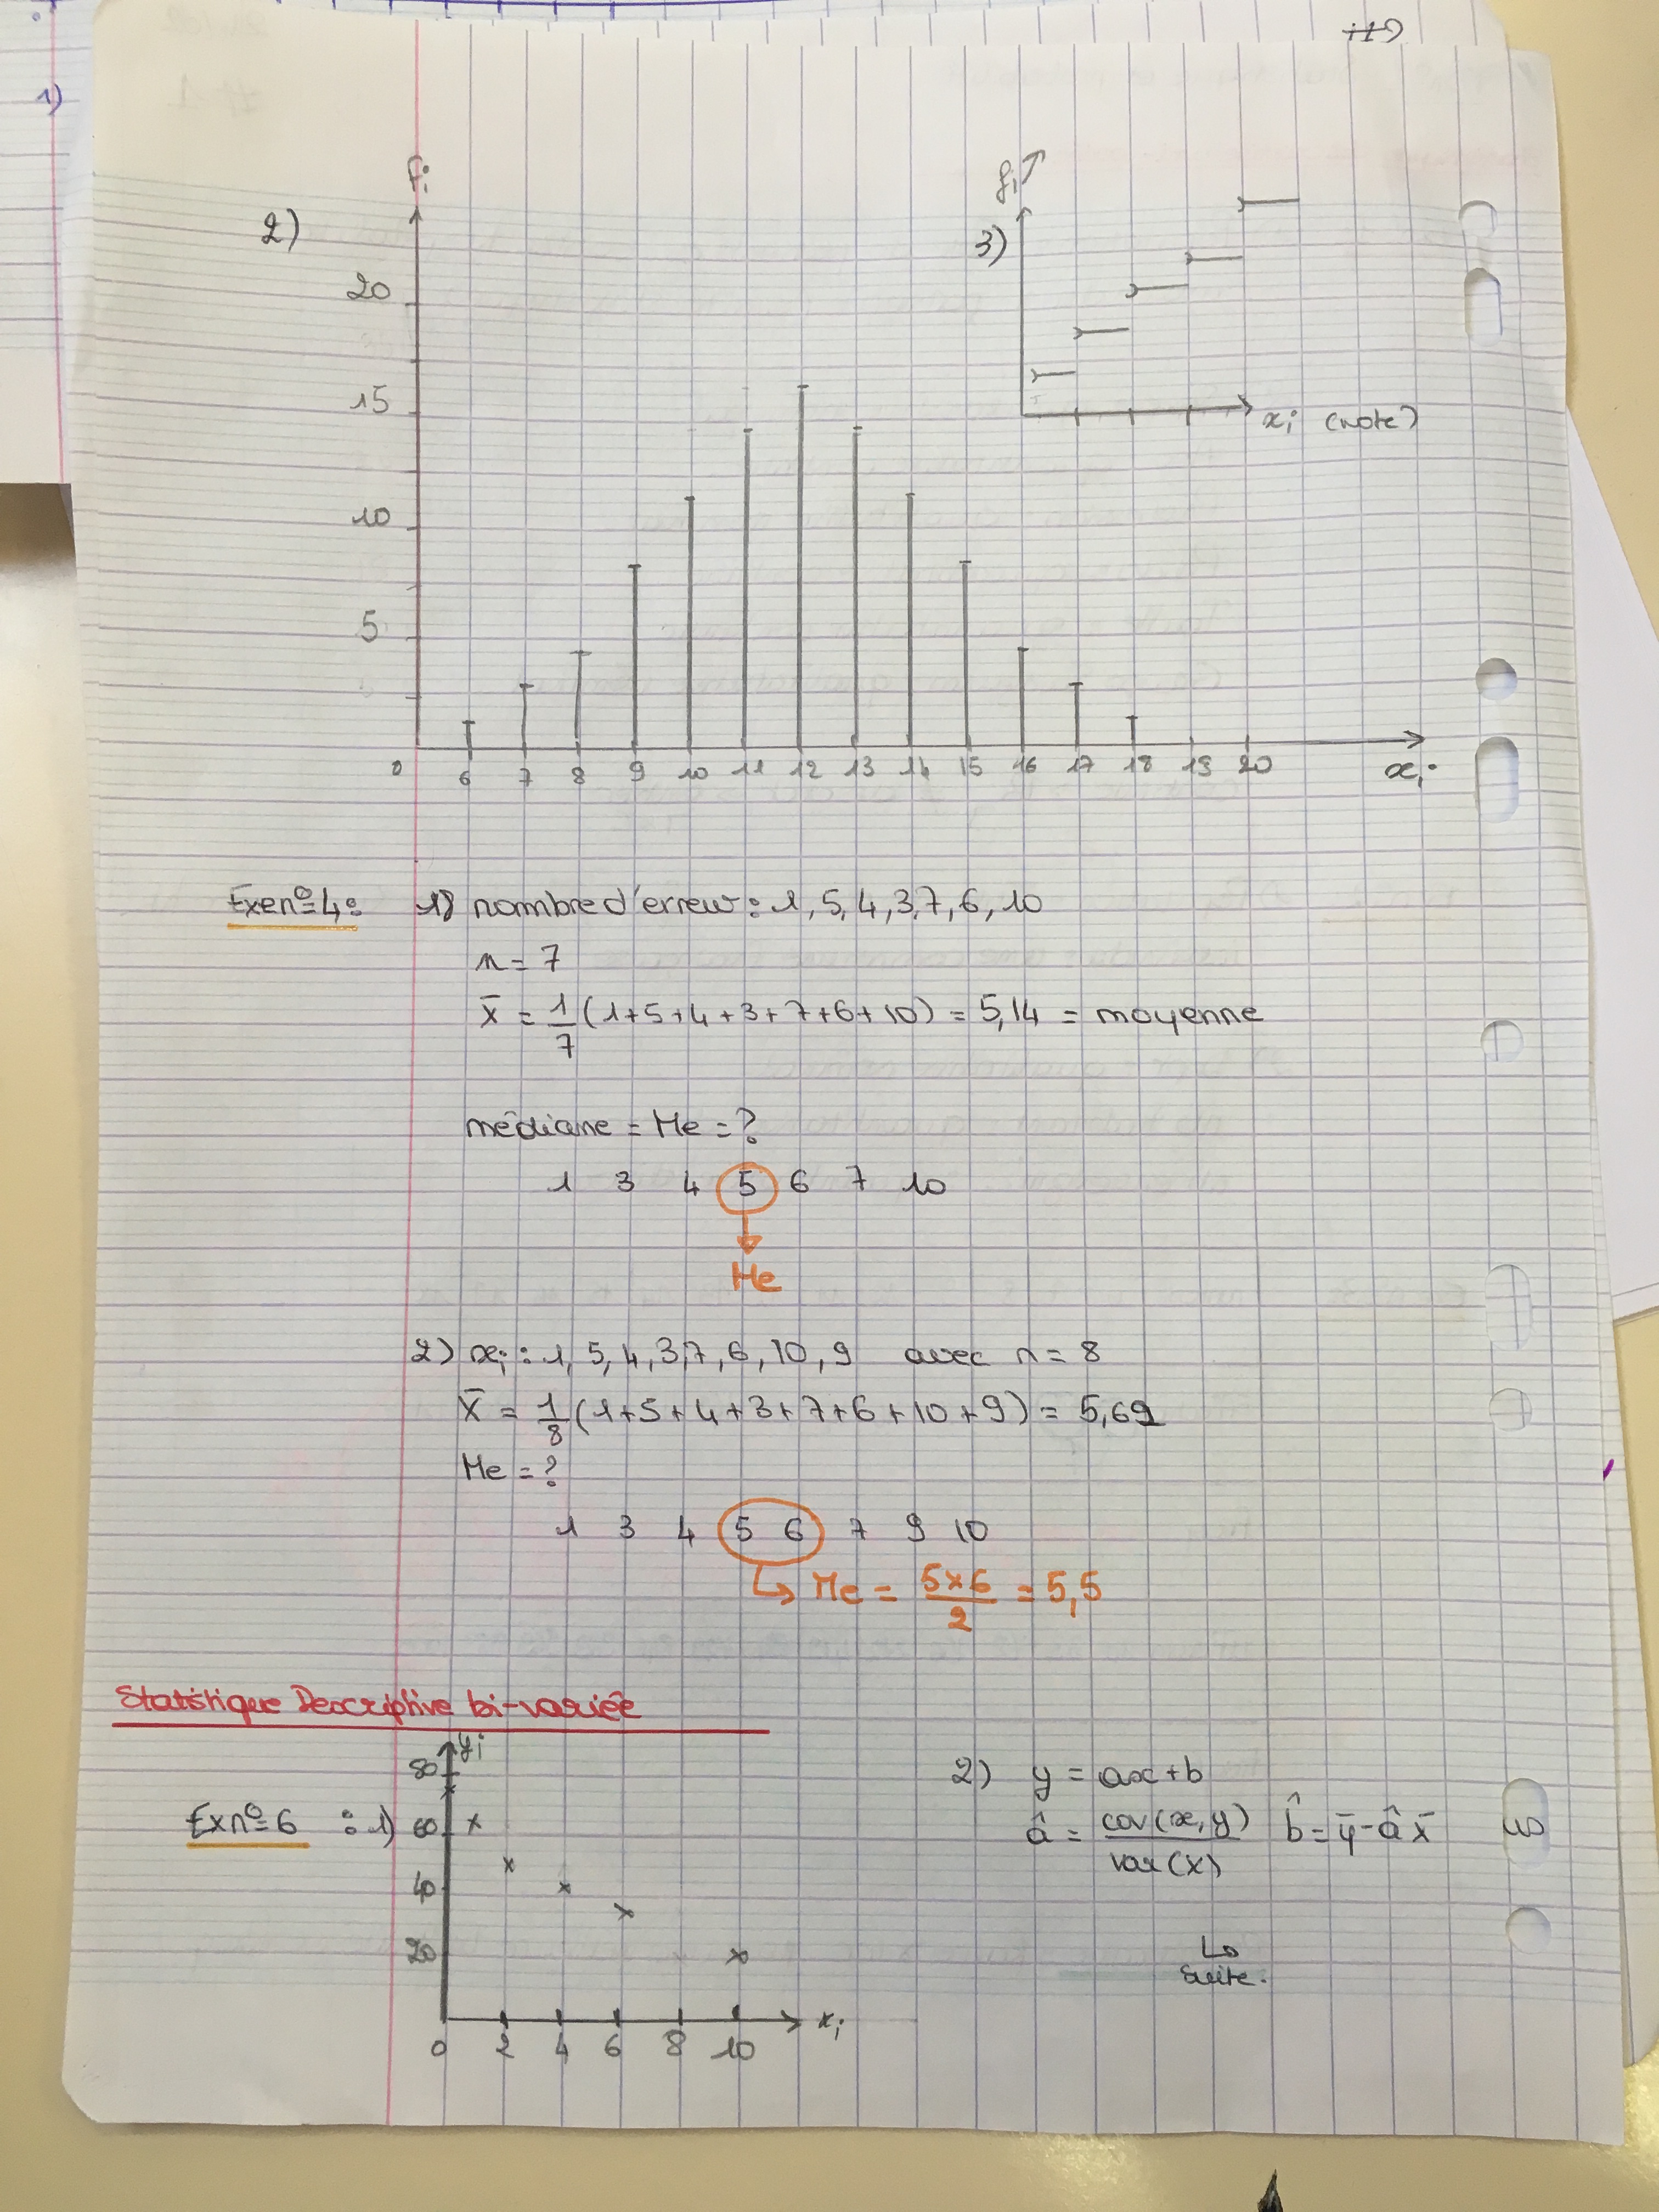 1)
2)
fi
20
15
10
5
0 6 7 8 9 10 11 12 13 14 15 16 17 18 19 20
xi
3)
fi↗
xi (note)
Ex n°4 : 1) nombre d'erreur : 1, 5, 4, 3, 7, 6, 10
n = 7
x̄ = 1/7 (1+5+4+3+7+6+10) = 5,14 = moyenne
médiane = Me = ?
1 3 4 5 6 7 10
Me
2) xi : 1, 5, 4, 3, 7, 6, 10, 9 avec n = 8
x̄ = 1/8 (1+5+4+3+7+6+10+9) = 5,69
Me = ?
1 3 4 5 6 7 9 10
↳ Me = 5×6/2 = 5,5
Statistique Descriptive bi-variée
Ex n°6 : 1)
yi
80
60
40
20
0 2 4 6 8 10
xi
2) y = ax+b
â = cov(x,y)/var(x) b̂ = ȳ - â x̄
↳
Suite.